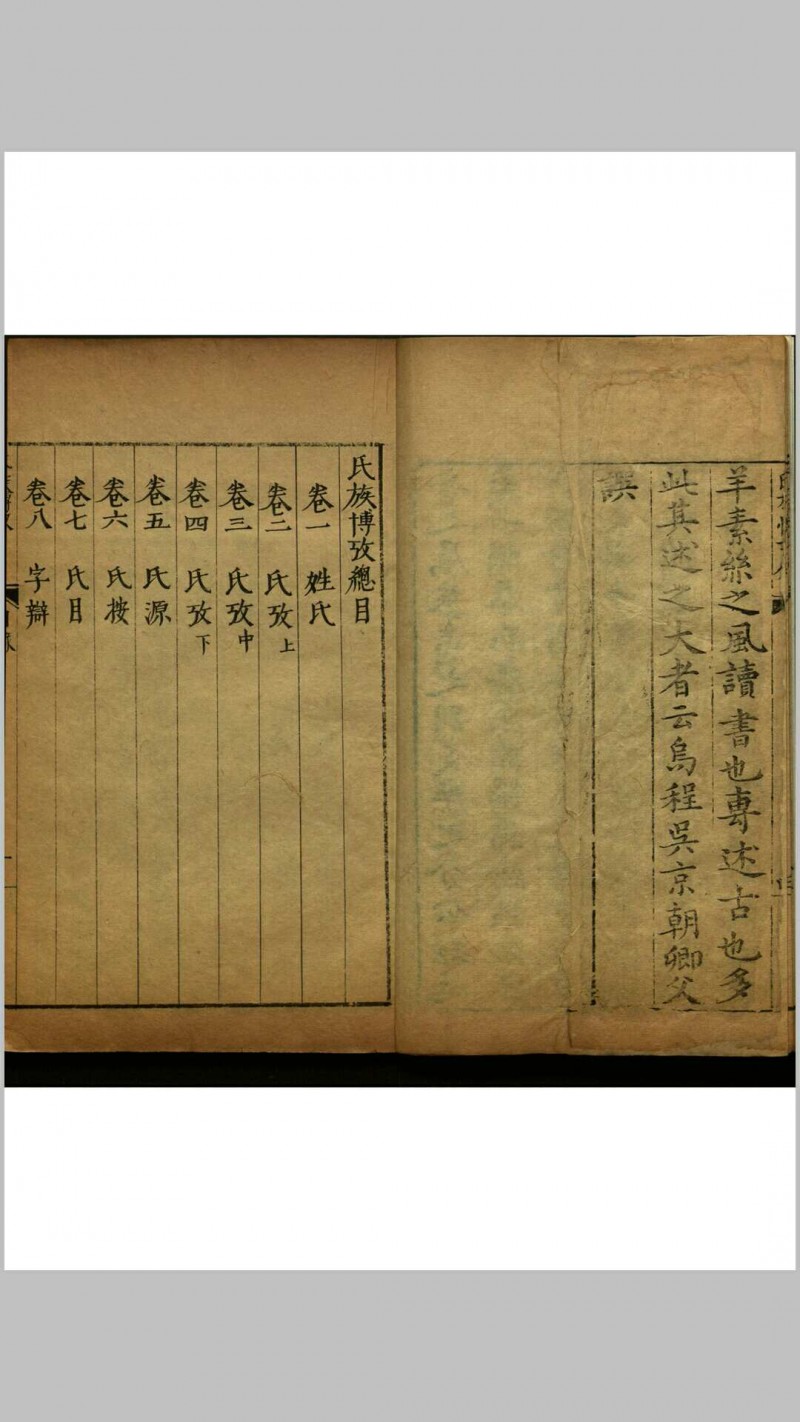 羊素絲之風讀書也專述古也多
此其述之大者云烏程吳京朝卿父
譔
氏族博攷總目
卷一 姓氏
卷二 氏攷上
卷三 氏攷中
卷四 氏攷下
卷五 氏源
卷六 氏桉
卷七 氏目
卷八 字辯